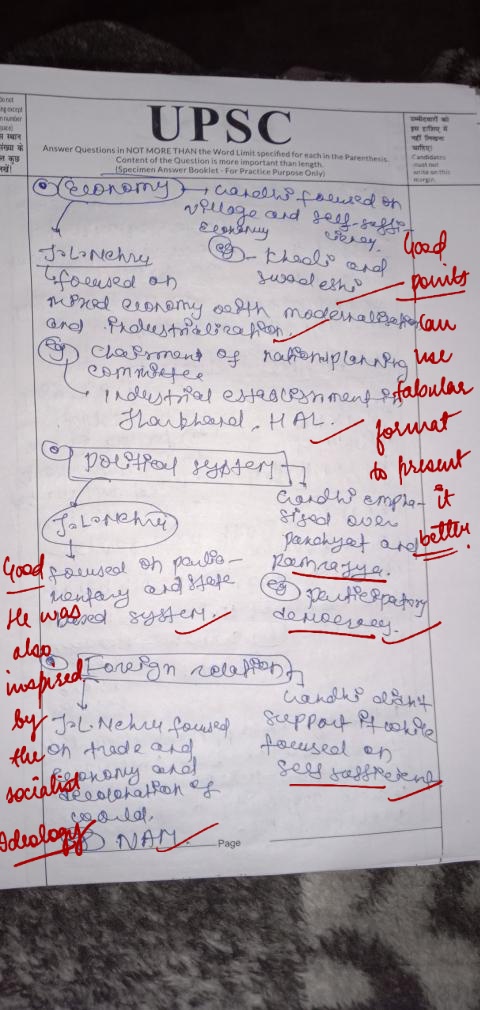 do not
ng except
n number
space)
स स्थान
संख्या के
त कुछ
लखें!
UPSC
Answer Questions in NOT MORE THAN the Word Limit specified for each in the Parenthesis.
Content of the Question is more important than length.
(Specimen Answer Booklet - For Practice Purpose Only)
उम्मीदवारों को
इस हाशिए में
नहीं लिखना
चाहिए!
Candidates
must not
write on this
margin.
Economy → Gandhi focused on
village and self-suffi-
Economy ciency.
eg - Khadi and
swadeshi
J.L. Nehru
focused on
mixed economy with modernalisation
and industrialization.
eg Chairment of nationplanning
committee
Industrial establishment in
Jharkhand, HAL.
Good
points
Can
use
tabular
format
to present
it
better
Political system
J.L. Nehru
focused on parlia-
mentary and state
based system.
Gandhi empha-
sized over
panchyat and
Ramrajya.
eg participatory
democracy.
Good
He was
also
inspired
by
the
socialist
Ideology
Foreign relation
J.L. Nehru focused
on trade and
Economy and
of
world.
NAM.
Gandhi didn't
support it while
focused on
self sufficient
Page